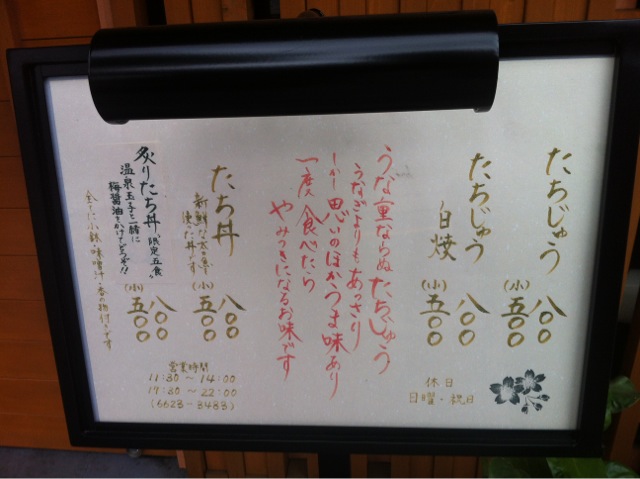 たちじゅう
八〇〇
(小)五〇〇
たちじゅう
白焼
八〇〇
(小)五〇〇
休日
日曜・祝日
うな重ならぬたちじゅう
うなぎよりもあっさり
しかし思いのほかうま味あり
一度食べたら
やみつきになるお味です
たち丼
新鮮な太刀魚を
使った丼です
八〇〇
(小)五〇〇
炙りたち丼 限定五食
温泉玉子と一緒に
梅醤油をかけてどうぞ!!
八〇〇
(小)五〇〇
全てに小鉢・味噌汁・香の物付です
営業時間
11:30～14:00
17:30～22:00
(6623-3483)